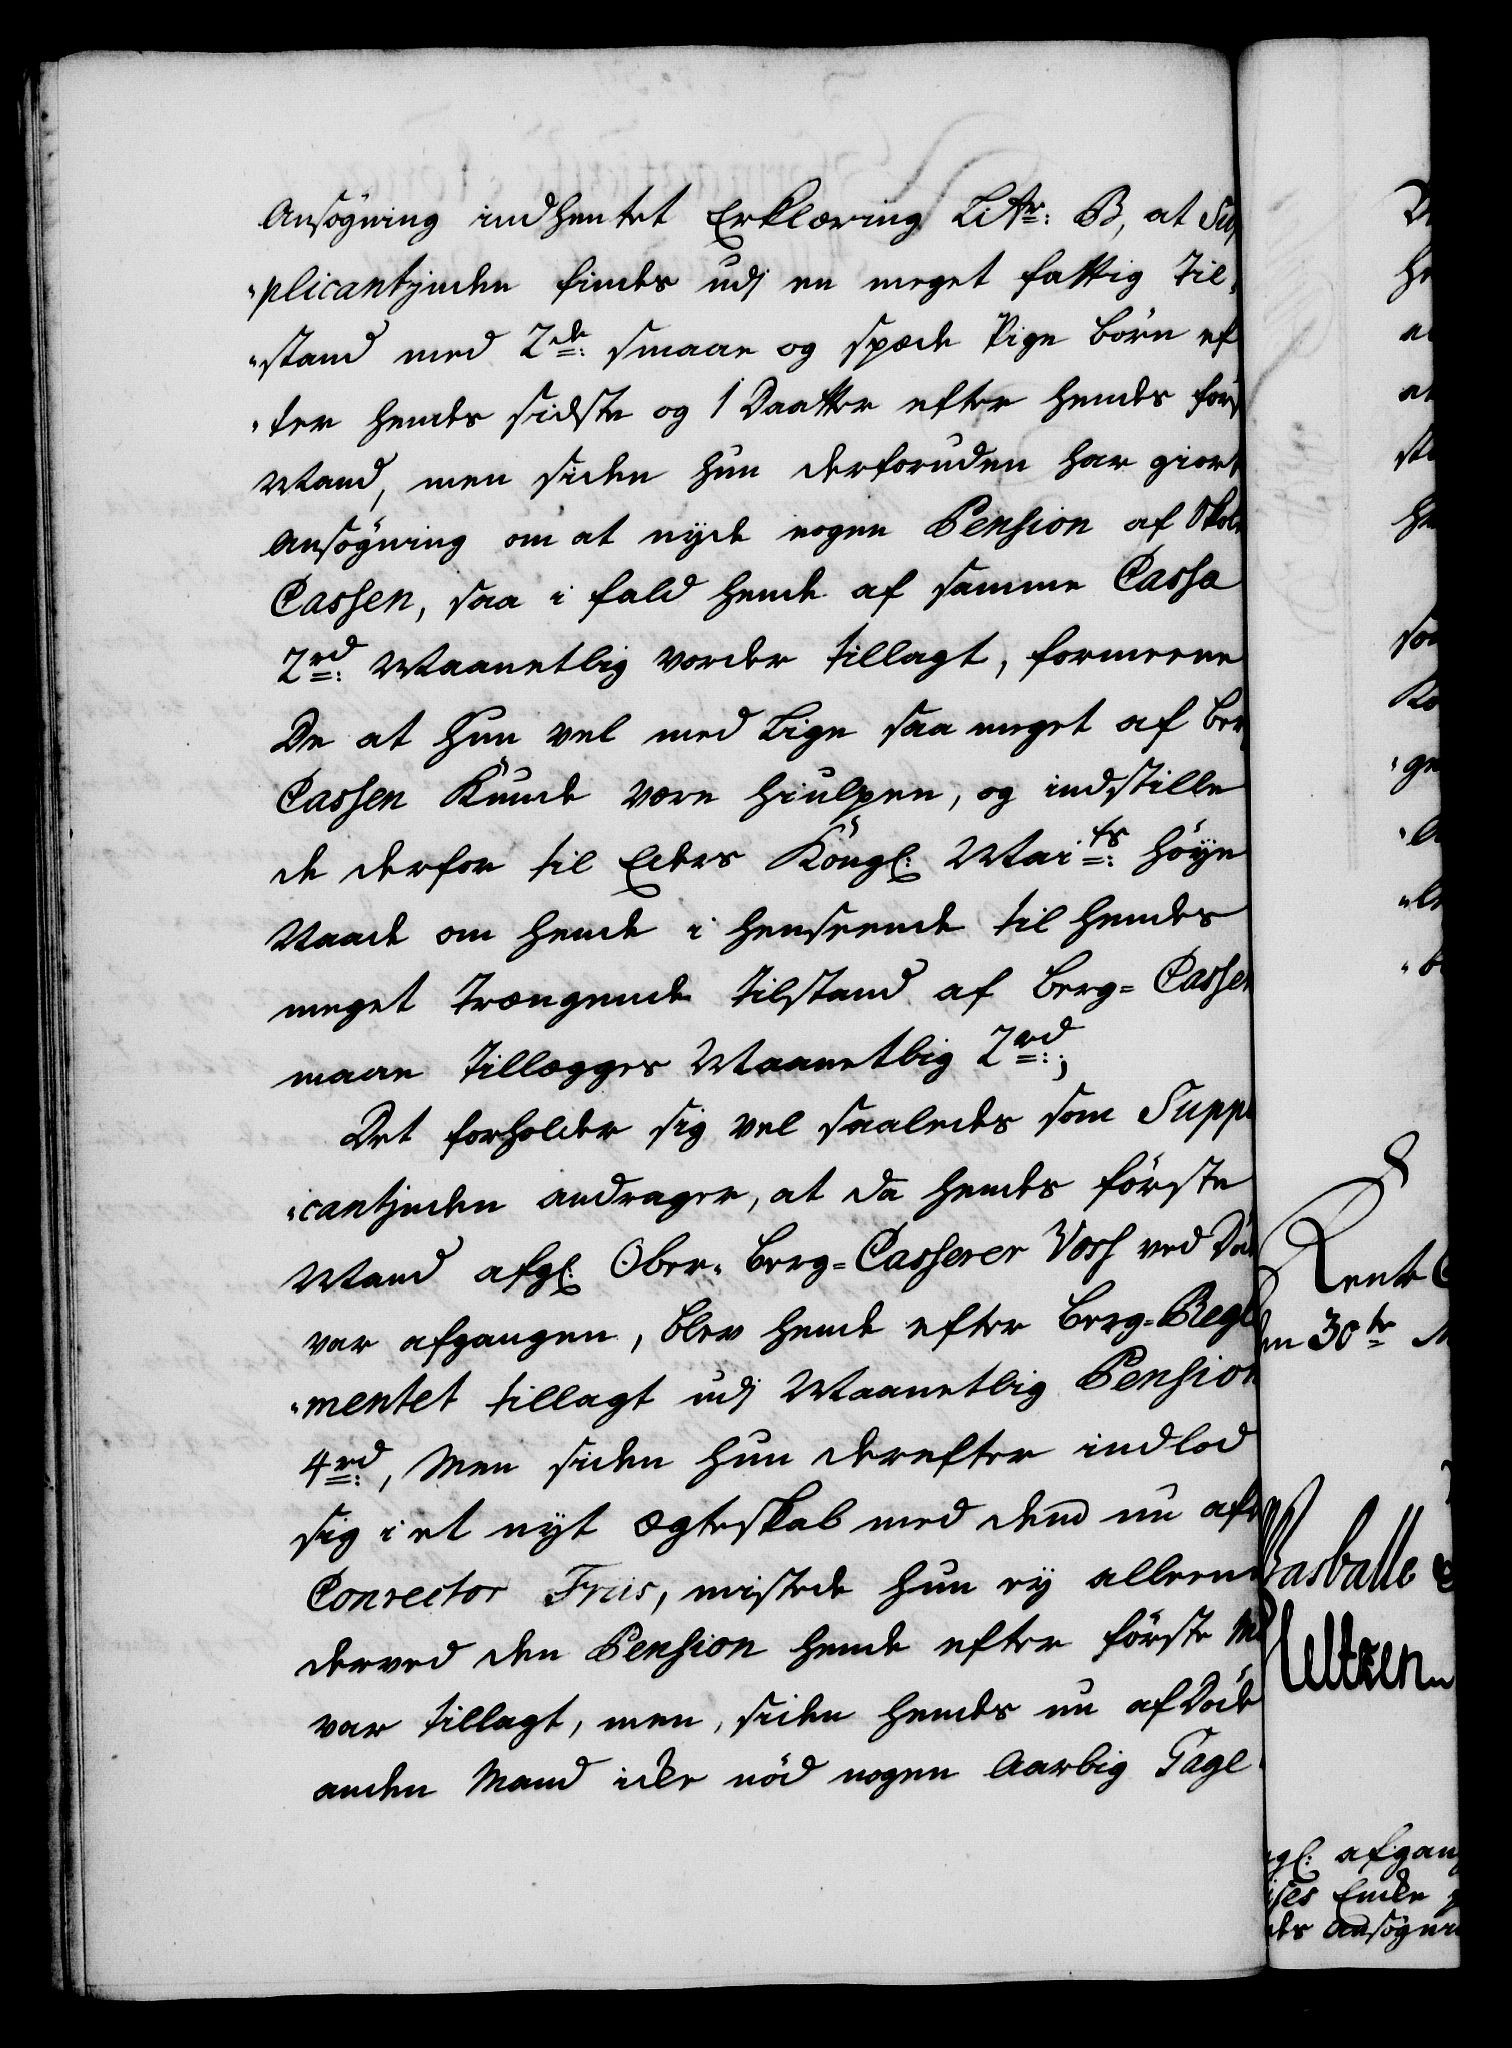 Ansøgning indhentet Erklæring Littr: B, at Sup
"plicantjnden findes udj en meget fattig Til,
"stand med 2de: smaae og spæde Pige Børn ef
"ter hendes sidste og 1 Daatter efter hendes først
Mand, men siden hun derforuden har giort
Ansøgning om at nyde nogen Pension af Skole
Cassen, saa i fald hende af samme Cassa
2rd: Maanetlig vorder tillagt, formeene
De at hun vel med Lige saa meget af Berg
Cassen Kunde være hiulpen, og indstille
de derfor til Eders Kongl: Maits: höye
Naade om hende i henseende til hendes
meget Trængende Tilstand af Berg= Cassen
maae Tillægges Maanetlig 2rd:;
Det forholder sig vel saaledes som Suppl
"cantjnden andrager, at da hendes förste
Mand afg: Ober= Berg=Casserer Voss ved Död
var afgangen, blev hende efter Berg=Regle
"mentet tillagt udj Maanetlig Pension
4rd:, Men siden hun derefter indlod
sig i et nyt Ægteskab med dend nu afg
Conrector Friis, mistede hun ey alleene
derved den Pension hende efter förste Ma
var tillagt, men, siden hendes nu afDöde
anden Mand icke nöd nogen Aarlig Gage
Rente C
en 30te M
Barballe
Heltzen
gl: afgang
ises Encke
des Ansøgni